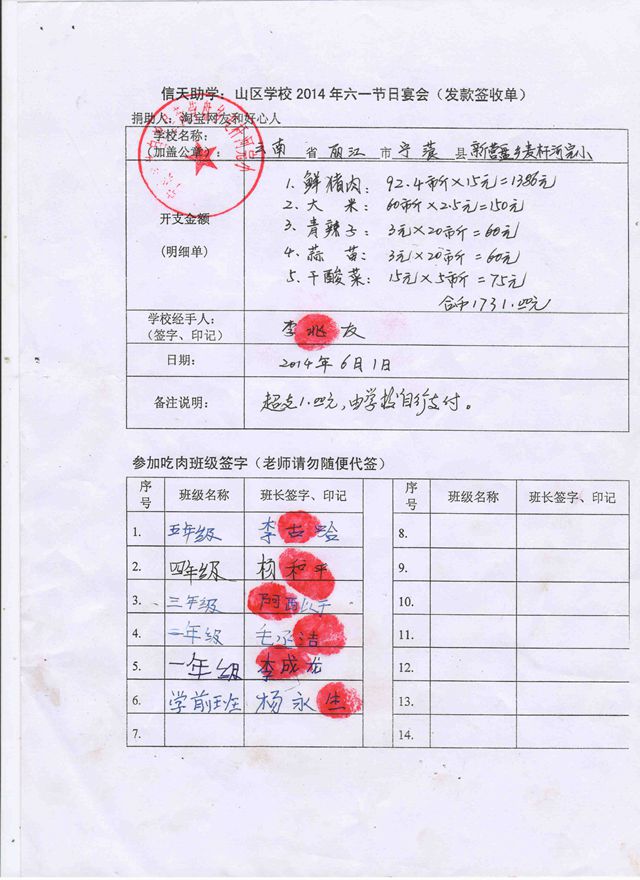 信天助学：山区学校2014年六一节日宴会（发款签收单）
捐助人：淘宝网友和好心人
学校名称：
（加盖公章）： 云南 省 丽江 市 宁蒗 县 新营盘乡麦杆河完小
开支金额
(明细单)
1. 鲜猪肉： 92.4市斤×15元=1386元
2. 大 米： 60市斤×2.5元=150元
3. 青辣子： 3元×20市斤=60元
4. 蒜 苗： 3元×20市斤=60元
5. 干酸菜： 15元×5市斤=75元
合币1731.00元
学校经手人：
（签字、印记） 李兆友
日期： 2014年6月1日
备注说明： 超支1.00元，由学校自行支付。
参加吃肉班级签字（老师请勿随便代签）
序号 班级名称 班长签字、印记 序号 班级名称 班长签字、印记
1. 五年级 李古 8.
2. 四年级 杨和平 9.
3. 三年级 阿 10.
4. 二年级 毛丞洁 11.
5. 一年级 李成龙 12.
6. 学前班 杨永生 13.
7. 14.